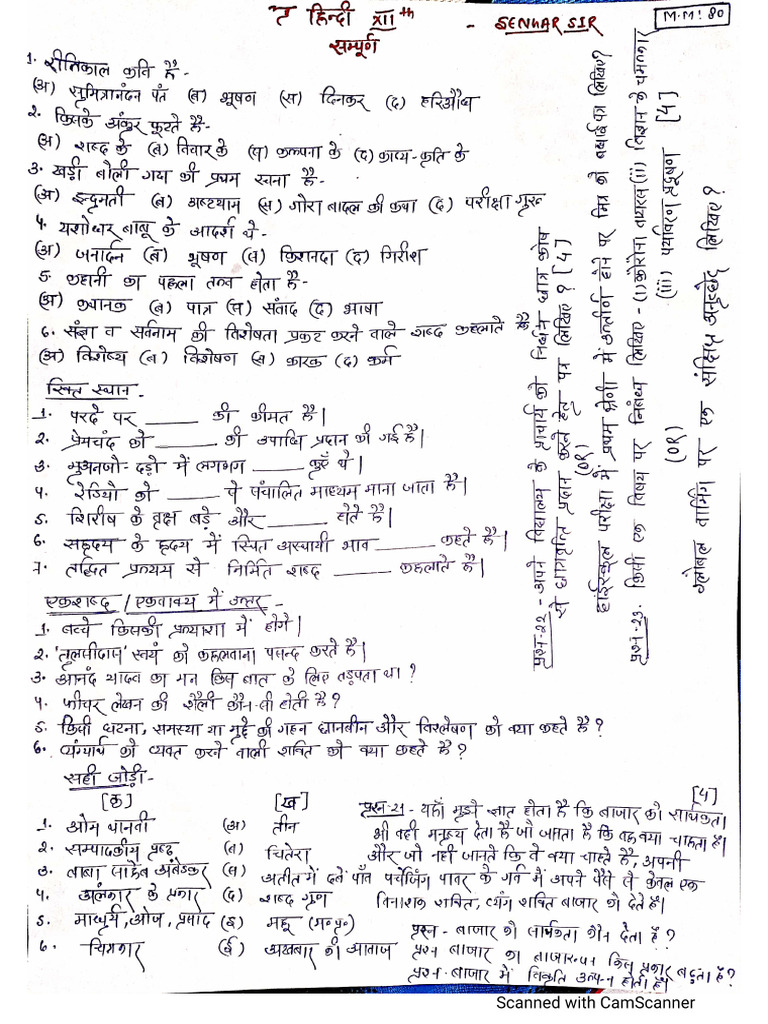 त हिन्दी XII th - SENHAR SIR
M.M! 80
सम्पूर्ण
1. रीतिकाल कवि है -
(अ) सुमित्रानंदन पंत (ब) भूषण (स) दिनकर (द) हरिऔध
2. किसके अंकुर फूटते है -
(अ) शब्द के (ब) विचार के (स) कल्पना के (द) काव्य-कृति के
3. खड़ी बोली गद्य की प्रथम रचना है -
(अ) इन्दुमती (ब) अष्टयाम (स) गोरा बादल की कथा (द) परीक्षा गुरु
4. यशोधर बाबू के आदर्श थे -
(अ) जनार्दन (ब) भूषण (स) किशनदा (द) गिरीश
5. कहानी का पहला तत्व होता है -
(अ) कथानक (ब) पात्र (स) संवाद (द) भाषा
6. संज्ञा व सर्वनाम की विशेषता प्रकट करने वाले शब्द कहलाते है
(अ) विशेष्य (ब) विशेषण (स) कारक (द) कर्म
रिक्त स्थान -
1. परदे पर ______ की कीमत है।
2. प्रेमचंद को ______ की उपाधि प्रदान की गई है।
3. मुअनजो-दड़ो में लगभग ______ कुएँ थे।
4. रेडियो को ______ से संचालित माध्यम माना जाता है।
5. शिरीष के वृक्ष बड़े और ______ होते है।
6. सहृदय के हृदय में स्थित अस्थायी भाव ______ कहते है।
7. तद्धित प्रत्यय से निर्मित शब्द ______ कहलाते है।
एकशब्द / एकवाक्य में उत्तर -
1. बच्चे किसकी प्रत्याशा में होंगे।
2. 'तुलसीदास' स्वयं को कहलवाना पसन्द करते है।
3. आनंद यादव का मन किस बात के लिए तड़पता था?
4. फीचर लेखन की शैली कौन-सी होती है?
5. किसी घटना, समस्या या मुद्दे की गहन छानबीन और विश्लेषण को क्या कहते है?
6. व्यंग्यार्थ को व्यक्त करने वाली शक्ति को क्या कहते है?
सही जोड़ी -
[क] [ख]
1. ओम थानवी (अ) तीन
2. सम्पादकीय पृष्ठ (ब) चितेरा
3. बाबा साहेब अंबेडकर (स) अतीत में दबे पाँव
4. अलंकार के प्रकार (द) शब्द गुण
5. माधुर्य, ओज, प्रसाद (इ) महू (म०प्र०)
6. चित्रकार (ई) अखबार की आवाज
प्रश्न-21 - यहाँ मुझे ज्ञात होता है कि बाजार को सार्थकता [4]
भी वही मनुष्य देता है जो जानता है कि वह क्या चाहता है।
और जो नहीं जानते कि वे क्या चाहते है, अपनी
पर्चेजिंग पावर के गर्व में अपने पैसे से केवल एक
विनाशक शक्ति, व्यंग शक्ति बाजार को देते है।
प्रश्न - बाजार को सार्थकता कौन देता है?
प्रश्न बाजार का बाजारूपन किस प्रकार बढ़ता है?
प्रश्न - बाजार में विकृति उत्पन्न होती है।
प्रश्न-22 - अपने विद्यालय के प्राचार्य को निर्धन छात्र कोष
से छात्रवृत्ति प्रदान करने हेतु पत्र लिखिए? [4]
(OR)
हाईस्कूल परीक्षा में प्रथम श्रेणी में उत्तीर्ण होने पर मित्र को बधाई पत्र लिखिए?
प्रश्न-23. किसी एक विषय पर निबंध लिखिए - (i) कोरोना वायरस (ii) विज्ञान के चमत्कार
(iii) पर्यावरण प्रदूषण [4]
(OR)
ग्लोबल वार्मिंग पर एक संक्षिप्त अनुच्छेद लिखिए?
Scanned with CamScanner